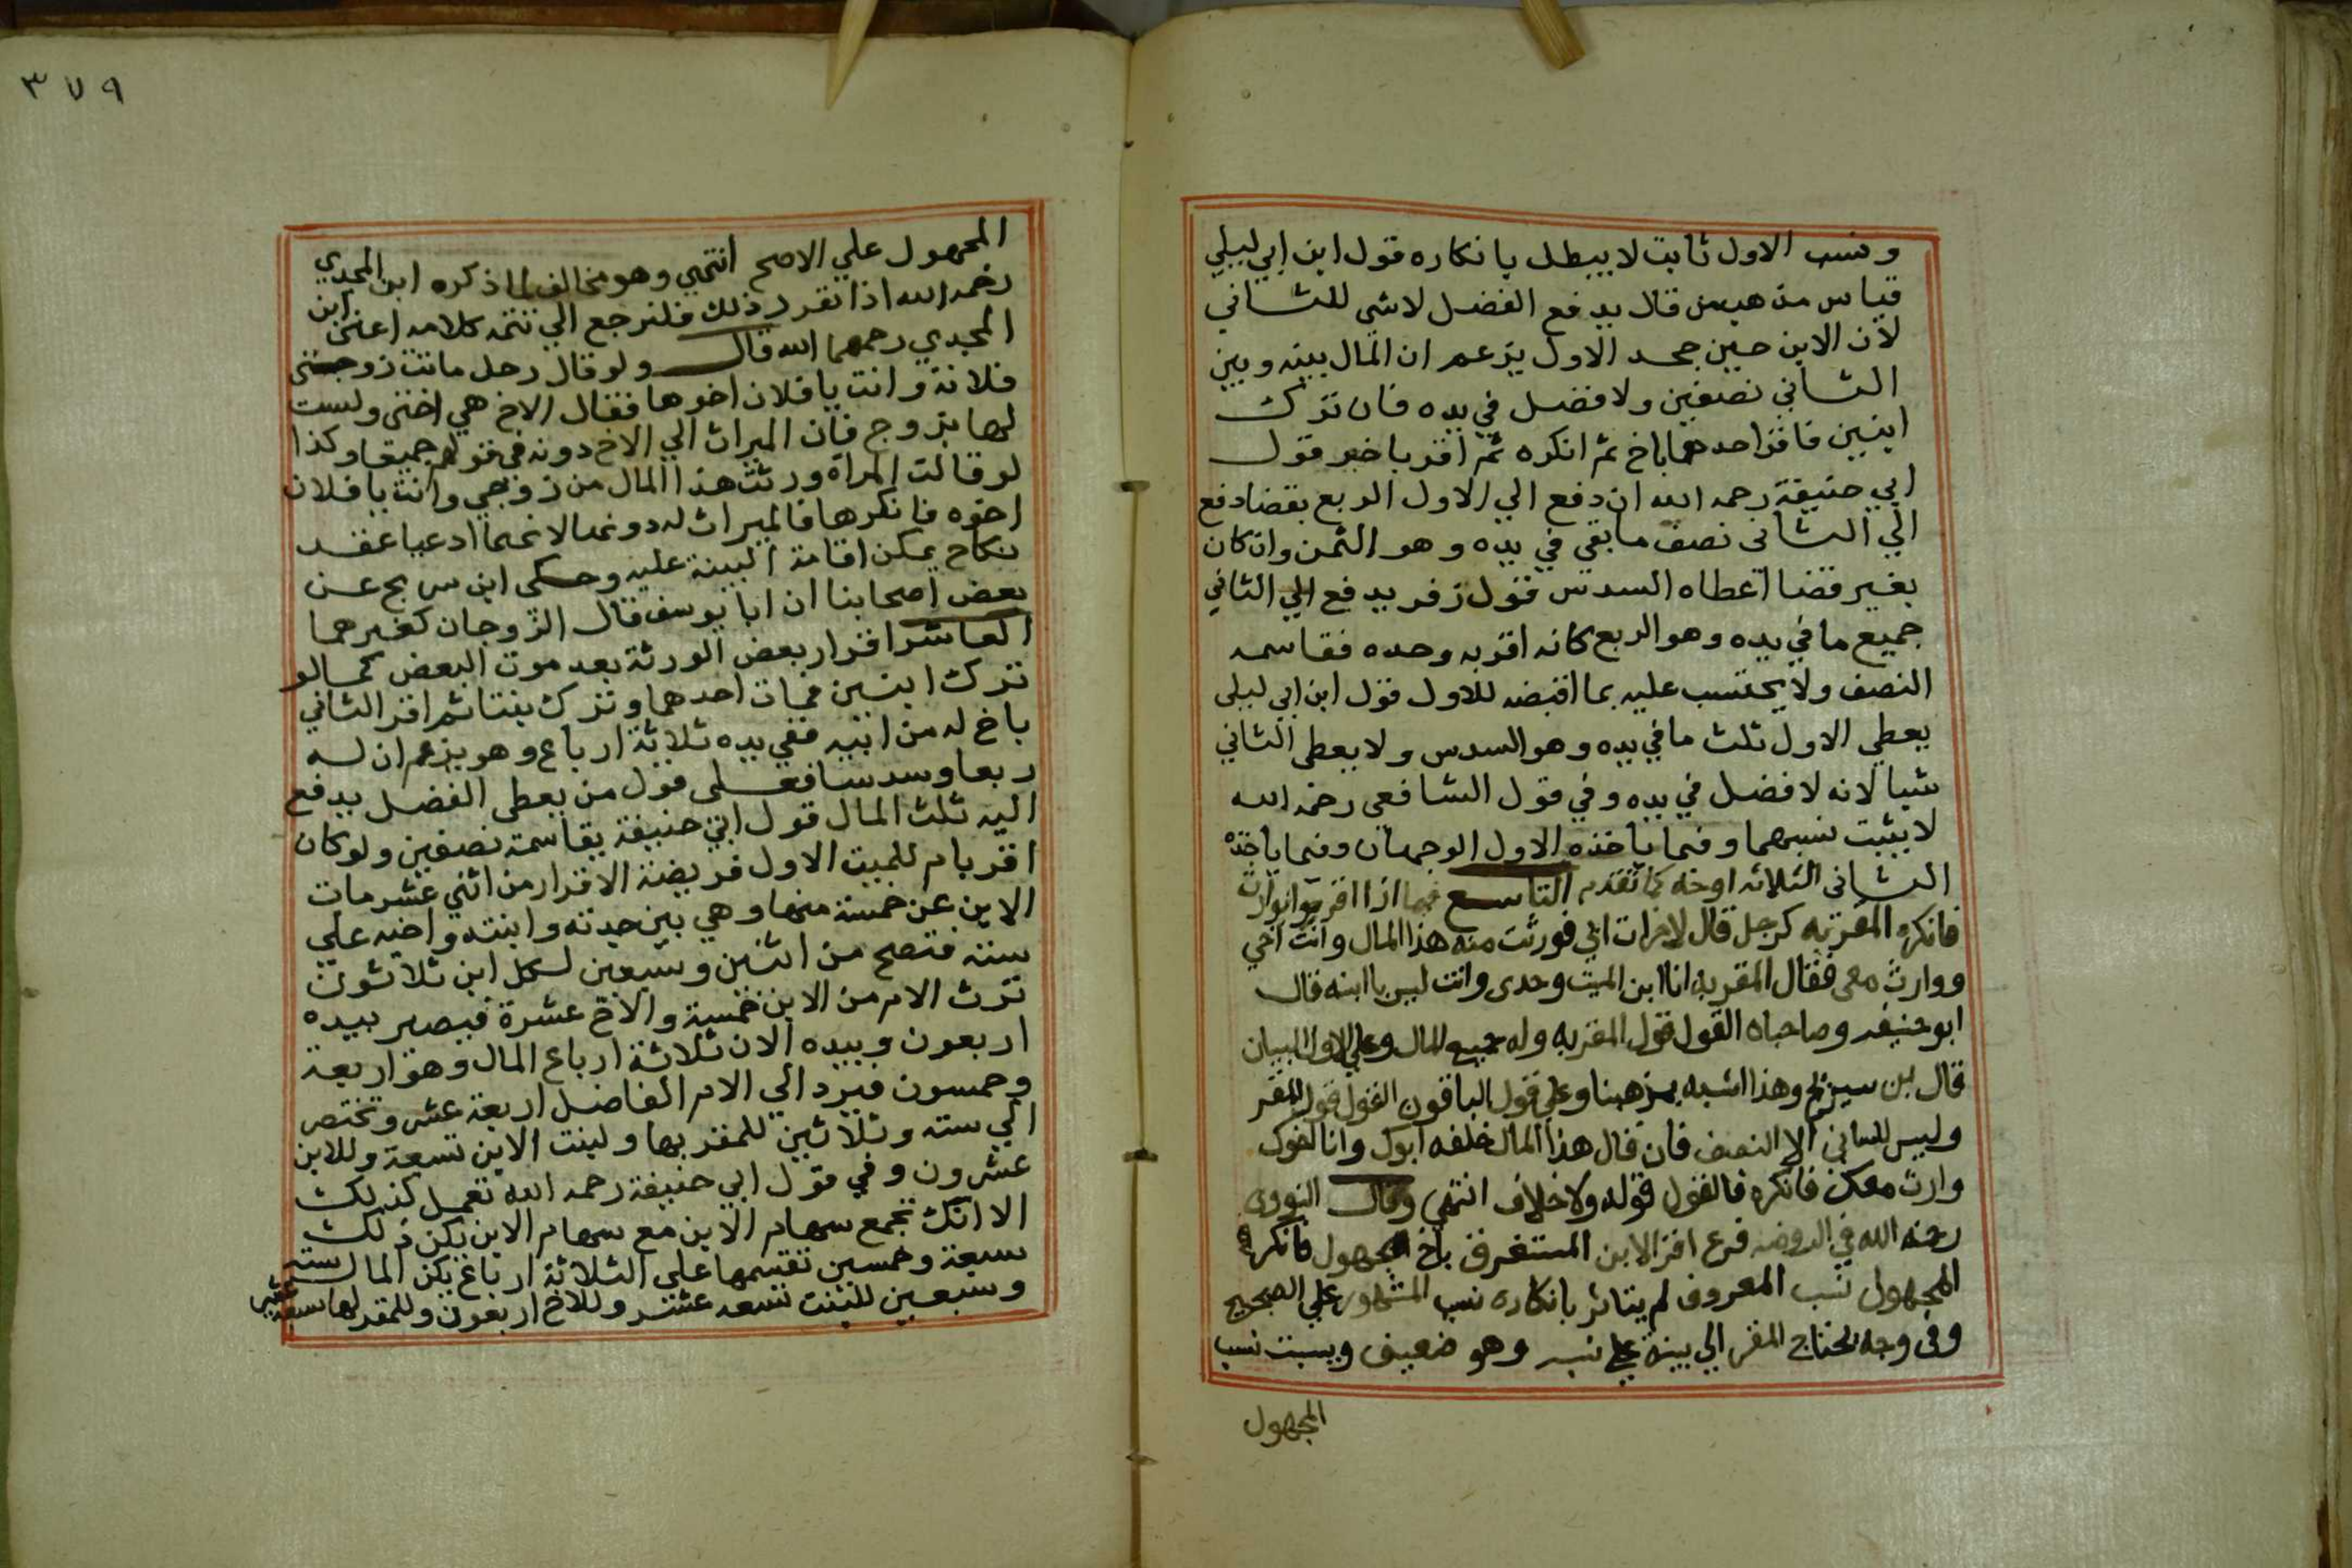 ونسب الاول ثابت لا يبطل بانكاره قول ابن ابي ليلي
قياس مذهبه من قال يدفع الفضل لا شي للثاني
لان الابن حين جحد الاول يزعم ان المال بينه وبين
الثاني نصفين ولا فضل في يده فان ترك
ابنين فاقر احدهما باخ ثم انكره ثم اقر باخر قول
ابي حنيفة رحمه الله ان دفع الي الاول الربع بقضا دفع
الي الثاني نصف ما بقي في يده وهو الثمن وان كان
بغير قضا اعطاه السدس قول زفر يدفع الي الثاني
جميع ما في يده وهو الربع كانه اقر به وحده فقاسمه
النصف ولا يحتسب عليه بما اقبضه للاول قول ابن ابي ليلى
يعطي الاول ثلث ما في يده وهو السدس ولا يعطى الثاني
شيا لانه لا فضل في يده وفي قول الشافعي رحمه الله
لا يثبت نسبهما وفيما ياخذه الاول الوجهان وفيما ياخذه
الثاني الثلاثه اوجه كما تقدم التاسع فيما اذا اقر بوارث
فانكره المقر به كرجل قال لاخر مات ابي فورثت منه هذا المال وانت اخي
ووارث معي فقال المقر به انا ابن الميت وحدي وانت ليس بابنه قال
ابو حنيفه وصاحباه القول قول المقر به وله جميع المال وعلي الاول البيان
قال بن سريج وهذا اشبه بمذهبنا وعلي قول الباقون القول قول المقر
وليس للثاني الا النصف فان قال هذا المال خلفه ابوك وانا اخوك
وارث معك فانكره فالقول قوله ولا خلاف انتهي وقال النووى
رحمه الله في الروضه فرع اقر الابن المستغرق باخ مجهول فانكره
المجهول نسب المعروف لم يتاثر بانكاره نسب المشهور علي الصحيح
وفي وجه يحتاج المقر الي بينة علي نسبه وهو ضعيف ويثبت نسب
المجهول
٣٧٩
المجهول علي الاصح انتهي وهو مخالف لما ذكره ابن المجدي
رحمه الله اذا تقرر ذلك فلنرجع الي تتمه كلامه اعني ابن
المجدي رحمهما الله قال ولو قال رجل ماتت زوجتي
فلانة وانت يا فلان اخوها فقال الاخ هي اختى ولست
لها بزوج فان الميراث الي الاخ دونه في قولهم جميعا وكذا
لو قالت المراه ورثت هذا المال من زوجي وانت يا فلان
اخوه فانكرها فالميراث له دونها لانهما ادعيا عقد
نكاح يمكن اقامة البينة عليه وحكى ابن سريج عن
بعض اصحابنا ان ابا يوسف قال الزوجان كغيرهما
العاشر اقرار بعض الورثة بعد موت البعض كما لو
ترك ابنين فمات احدهما وترك بنتا ثم اقر الثاني
باخ له من ابيه ففي يده ثلاثة ارباع وهو يزعم ان له
ربعا وسدسا فعلى قول من يعطى الفضل يدفع
اليه ثلث المال قول ابي حنيفة يقاسمة نصفين ولو كان
اقر بام للميت الاول فريضة الاقرار من اثني عشر مات
الابن عن خمسة منها وهي بين جدته وابنته واخيه علي
ستة فتصح من اثنين وسبعين لكل ابن ثلاثون
ترث الام من الابن خمسة والاخ عشرة فيصير بيده
اربعون وبيده الان ثلاثة ارباع المال وهو اربعة
وخمسون فيرد الي الام الفاضل اربعة عشر وتختصر
الي سته وثلاثين للمقر بها ولبنت الابن تسعة وللابن
عشرون وفي قول ابي حنيفة رحمه الله تعمل كذلك
الا انك تجمع سهام الابن مع سهام الابن يكن ذلك
سبعة وخمسين تقسمها علي الثلاثة ارباع يكن المال سته
وسبعين للبنت تسعه عشر وللاخ اربعون وللمقر لها سبعة عشر